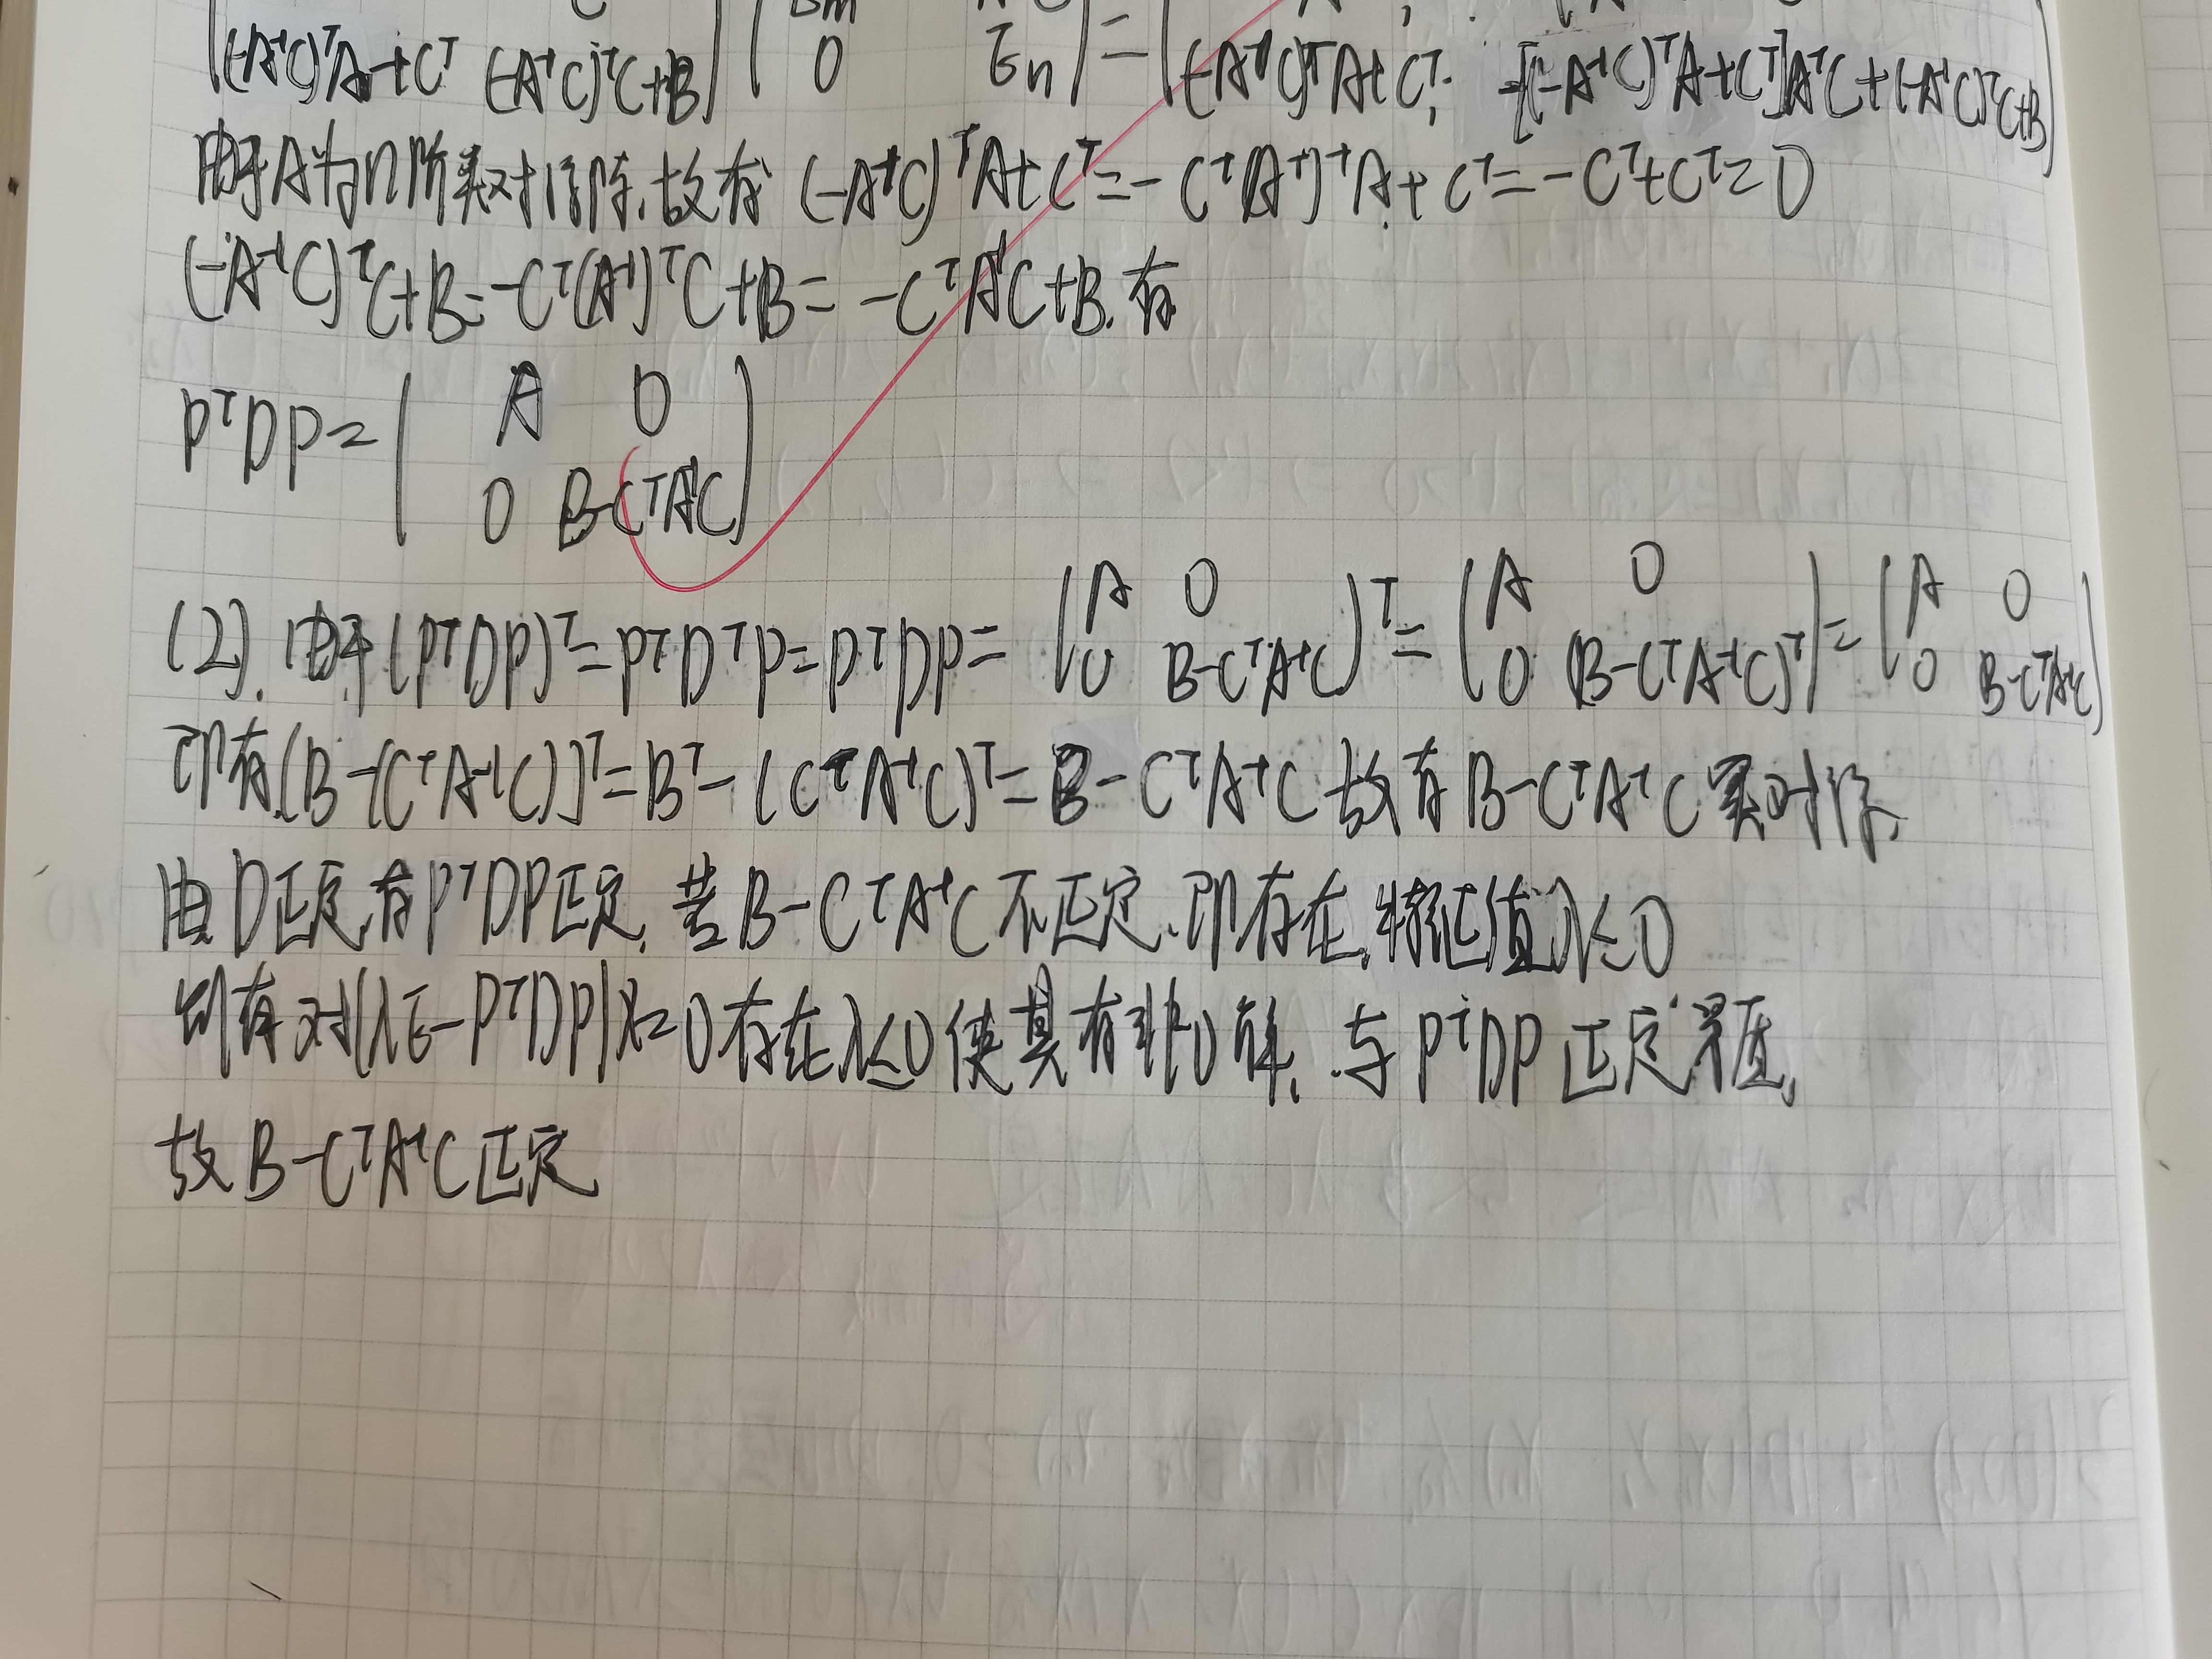 (-A⁻¹C)ᵀA+Cᵀ (-A⁻¹C)ᵀC+B 0 Eₙ = (-A⁻¹C)ᵀA+Cᵀ; -[(-A⁻¹C)ᵀA+Cᵀ]A⁻¹C+(-A⁻¹C)ᵀC+B
由于A为n阶实对称阵,故有 (-A⁻¹C)ᵀA+Cᵀ=-Cᵀ(Aᵀ)⁻¹A+Cᵀ=-Cᵀ+Cᵀ=0
(-A⁻¹C)ᵀC+B=-Cᵀ(A⁻¹)ᵀC+B=-CᵀA⁻¹C+B.有
PᵀDP=(A 0
0 B-CᵀA⁻¹C)
(2).由于(PᵀDP)ᵀ=PᵀDᵀP=PᵀDP=(A 0 0 B-CᵀA⁻¹C)ᵀ=(A 0 0 (B-CᵀA⁻¹C)ᵀ)=(A 0 0 B-CᵀA⁻¹C)
即有[B-(CᵀA⁻¹C)]ᵀ=Bᵀ-(CᵀA⁻¹C)ᵀ=B-CᵀA⁻¹C 故有B-CᵀA⁻¹C实对称,
由D正定,有PᵀDP正定,若B-CᵀA⁻¹C不正定,即存在,特征值λ≤0
则有对(λE-PᵀDP)x=0存在λ≤0使其有非0解,与PᵀDP正定矛盾,
故B-CᵀA⁻¹C正定